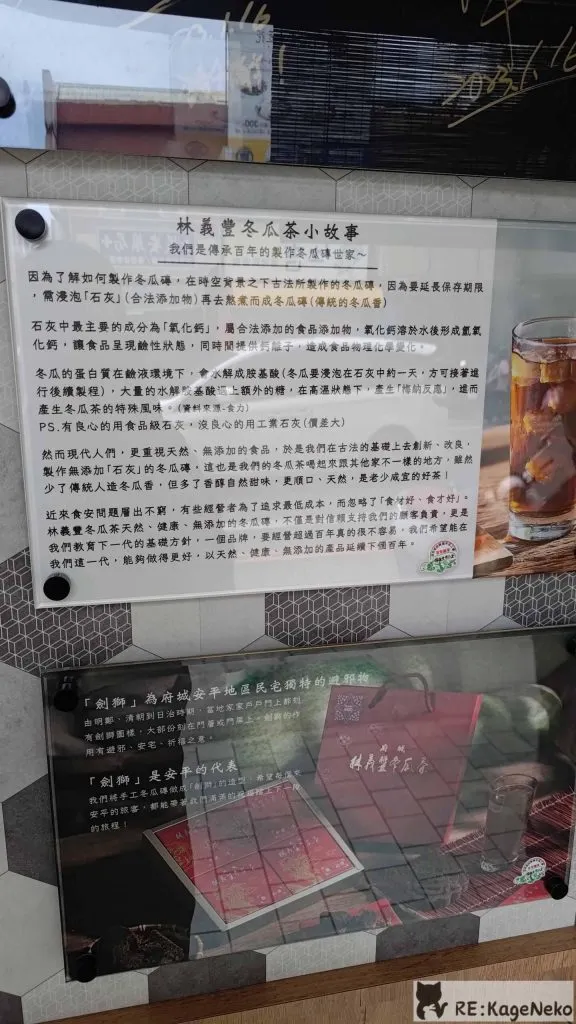 2023.1.16
林義豐冬瓜茶小故事
我們是傳承百年的製作冬瓜磚世家～
因為了解如何製作冬瓜磚，在時空背景之下古法所製作的冬瓜磚，因為要延長保存期限
，需浸泡「石灰」(合法添加物)再去熬煮而成冬瓜磚(傳統的冬瓜香)
石灰中最主要的成分為「氧化鈣」，屬合法添加的食品添加物，氧化鈣溶於水後形成氫氧
化鈣，讓食品呈現鹼性狀態，同時間提供鈣離子，造成食品物理化學變化。
冬瓜的蛋白質在鹼液環境下，會水解成胺基酸(冬瓜要浸泡在石灰中約一天，方可接著進
行後續製程)，大量的水解胺基酸遇上額外的糖，在高溫狀態下，產生「梅納反應」，進而
產生冬瓜茶的特殊風味。(資料來源-食力)
PS.有良心的用食品級石灰，沒良心的用工業石灰(價差大)
然而現代人們，更重視天然、無添加的食品，於是我們在古法的基礎上去創新、改良，
製作無添加「石灰」的冬瓜磚，這也是我們的冬瓜茶喝起來跟其他家不一樣的地方，雖然
少了傳統人造冬瓜香，但多了香醇自然甜味，更順口、天然，是老少咸宜的好茶！
近來食安問題層出不窮，有些經營者為了追求最低成本，而忽略了「食材好、食才好」。
林義豐冬瓜茶天然、健康、無添加的冬瓜磚，不僅是對信賴支持我們的顧客負責，更是
我們教育下一代的基礎方針，一個品牌，要經營超過百年真的很不容易，我們希望能在
我們這一代，能夠做得更好，以天然、健康、無添加的產品延續下個百年。
「劍獅」為府城安平地區民宅獨特的避邪物
由明鄭、清朝到日治時期，當地家家戶戶門上都刻
有劍獅圖樣，大部份刻在門簷或門屏上。劍獅的作
用有避邪、安宅、祈福之意。
「劍獅」是安平的代表
我們將手工冬瓜磚做成「劍獅」的造型，希望每個來
安平的旅客，都能帶著我們滿滿的祝福踏上下一段
的旅程！
府城
林義豐冬瓜茶
RE:KageNeko